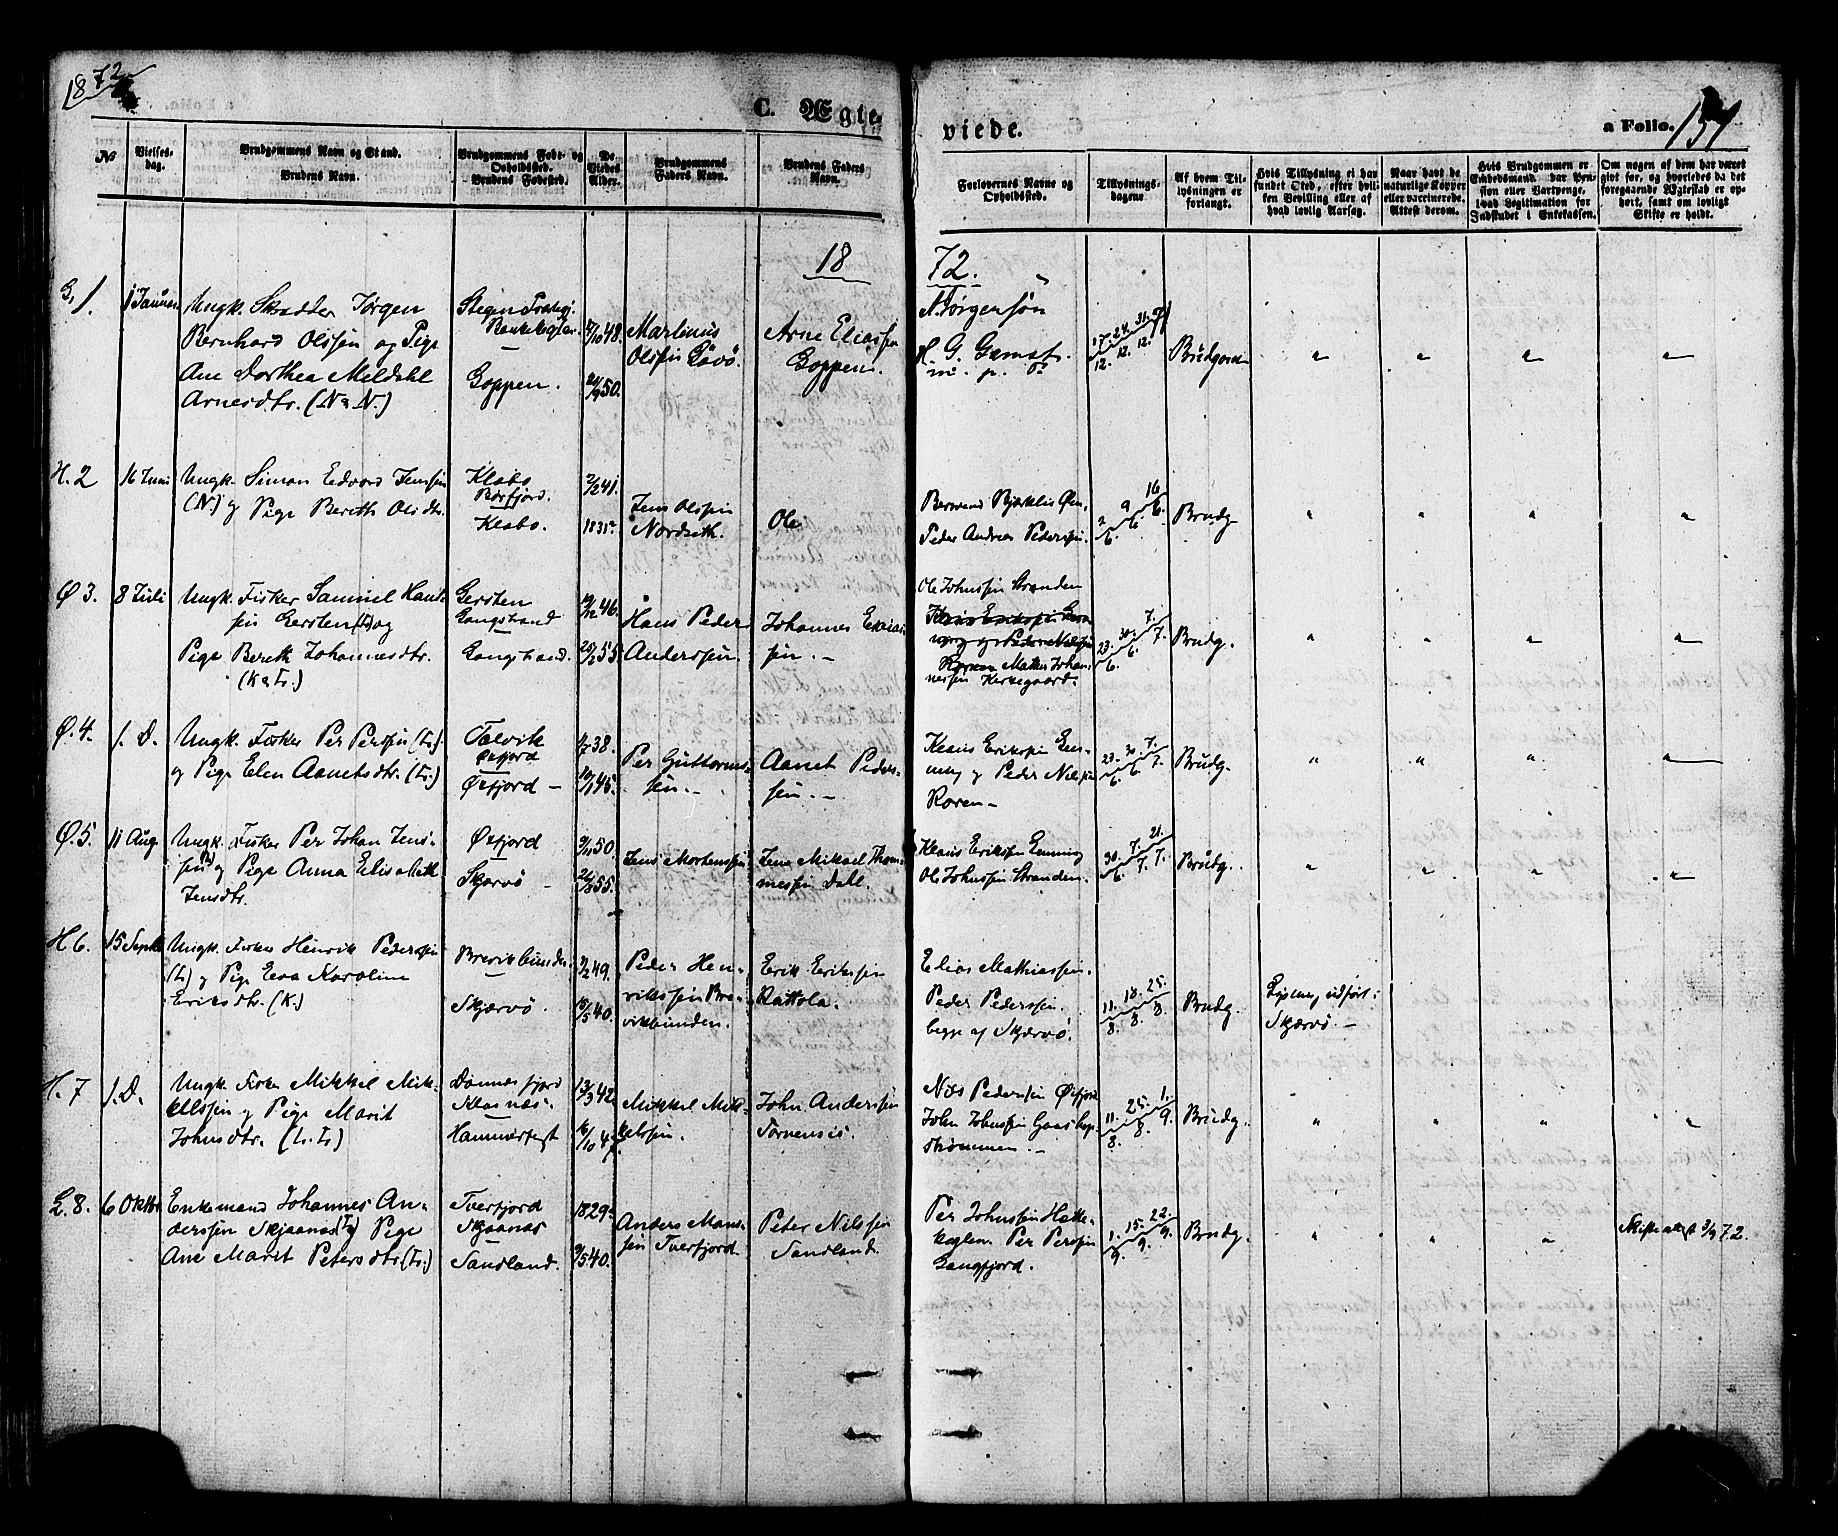 1872
C. Ægte-
viede.
a Folio. 154
№
Vielses-
dag.
Brudgommens Navn og Stand.
Brudens Navn.
Brudgommens Føde- og
Opholdssted.
Brudens Fødested.
De
Viedes
Alder.
Brudgommens
Faders Navn.
Brudens Faders
Navn.
Forlovernes Navne og
Opholdssted.
Tillysnings-
dagene
Af hvem Til-
lysningen er
forlangt.
Hvis Tillysning ei har
fundet Sted, efter hvil-
ken Bevilling eller af
hvad lovlig Aarsag.
Naar havt de
naturlige Kopper
eller vaccinerede.
Attest derom.
Hvis Brudgommen er
Embedsmand, har Pen-
sion eller Vartpenge,
hvad Legitimation for
Indskudet i Enkekassen.
Om nogen af dem har været
gift før, og hvorledes da det
foregaaende Ægteskab er op-
hørt, samt om lovligt
Skifte er holdt.
18 72.
G. 1.
1 Januar
Ungk. Skrædder Jørgen
Bernhard Olssen og Pige
Ane Dorthea Meldahl
Arnesdtr. (N & N.)
Goppen.
48.
24/9 50.
Martinus
Olssen
Arne Eliassen
Goppen.
Jørgensøn
H. G. Gamst.
m. p. P.
17/12. 24/12. 31/12.
Brudgom
" " " "
H. 2
16 Juni
Ungk. Simon Edvard Jenssen
(N.) og Pige Bereth Olsdtr.
Klobo
Rørfjord.
Klobo.
2/2 41.
1831.
Jens Olssen
Nordseth.
Ole
Peder Andreas Pederssen.
2/6. 9/6. 16/6.
Brudg.
" " " "
Ø 3.
8 Juli
Ungk. Fisker Samuel Hans-
sen Gersten (L) og
Pige Bereth Johannesdtr.
(K & L.)
Gersten
Langstrand
Langstrand.
46.
55.
Hans Peder
Anderssen.
Johannes
sen. -
Ole Johnssen Stranden
Klaus Erikssen
og Peder Nilssen
Roren Mathis Johan-
nessen Kirkegaard.
23/6. 30/6. 7/7.
Brudg.
" " " "
Ø. 4.
s. D.
Ungk. Fisker Per Perssen (L.)
og Pige Elen Aanetsdtr. (L.)
Talvik
Øxfjord
Øxfjord -
38.
45.
Per Guttorms-
sen. -
Aanet Peders-
sen. -
Klaus Erikssen
og Peder Nilssen
Roren -
23/6. 30/6. 7/7.
Brudg.
" " " "
Ø. 5.
11 Aug
Ungk. Fisker Per Johan Jens-
sen og Pige Anna Elisabeth
Jensdtr.
Øxfjord
Skjervø -
50.
55.
Jens Mortenssen
Jens Mikael Thom-
messen Dahl.
Klaus Erikssen
Ole Johnssen Stranden.
30/6. 7/7. 21/7.
Brudg.
" " " "
H 6.
15 Septbr
Ungk. Fisker Henrik Pederssen
(L) og Pige Eva Karoline
Eriksdtr. (K.)
Brevikbunden.
Skjærvø.
49.
15/5 40.
Peder Hen-
rikssen Bre-
vikbunden.
Erik Erikssen
Rattola.
Elias Mathiassen.
Peder Pederssen.
begge af Skjærvø.
11/8. 18/8. 25/8.
Brudg.
Lysning udført i
Skjærvø. -
H. 7
s. D.
Ungk. Fisker Mikkel Mik-
kelssen og Pige Marit
Johnsdtr. (L. L)
Dønnesfjord
Hammerfest
13/3 42
16/10 47
Mikkel Mik-
kelssen.
John Anderssen
Torvensis.
Nils Pederssen Øxfjord
John Johnssen
Strømmen. -
11/8. 25/8. 1/9.
Brudg.
" " " "
L. 8.
6 Oktbr
Enkemand Johannes An-
derssen Skjaanas (L) og Pige
Ane Marit Petersdtr. (L.)
Tverfjord
Skjaanas
Sandland.
1829.
40.
Anders Mons-
sen Tverfjord.
Peter Nilssen
Sandland.
Per Johnssen
Per Perssen
Langfjord.
1/9. 15/9. 22/9.
Brudg.
" " "
Skifteattest 3/9 72.